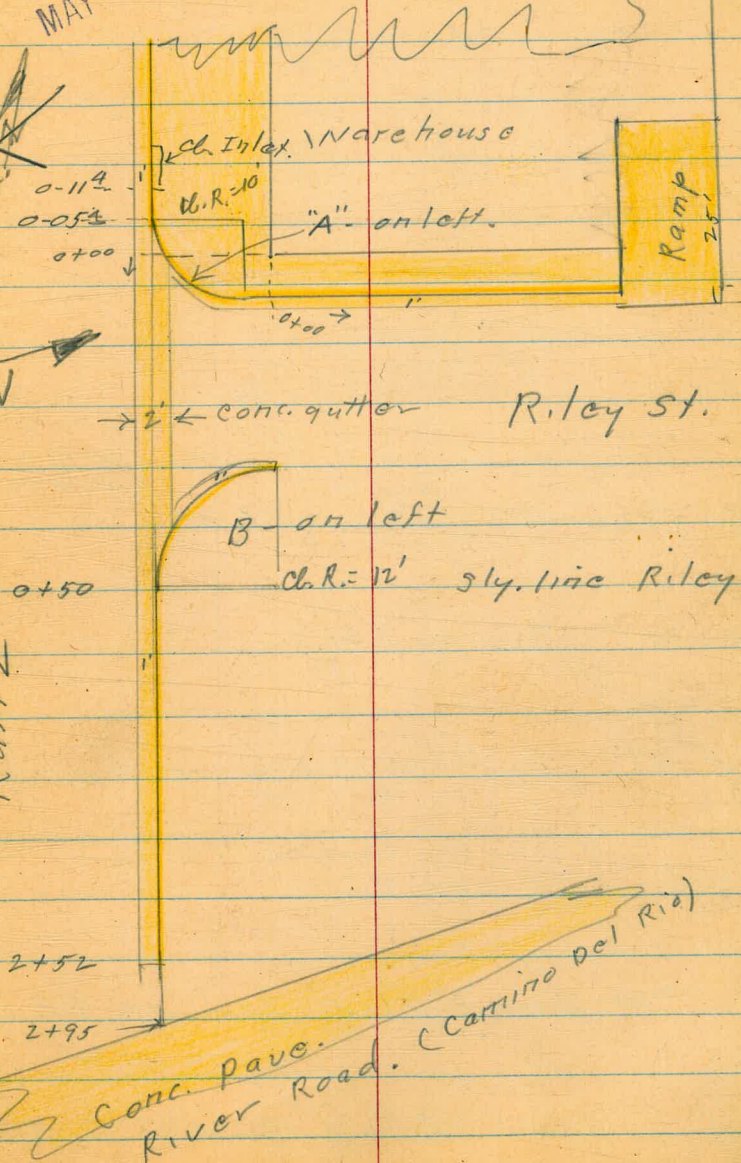 MAY
cb. Inlet. Warehouse
1'
0-11⁴
cb. R.=10'
0-05⁴
"A"- on left.
0+00
Ramp
25'
0+00
1'
2' conc. gutter
Riley St.
1'
B-on left
0+50
cb. R.= 12'
sly. line Riley
1'
2+52
2+95
Conc. pave.
River Road. (Camino Del Rio)